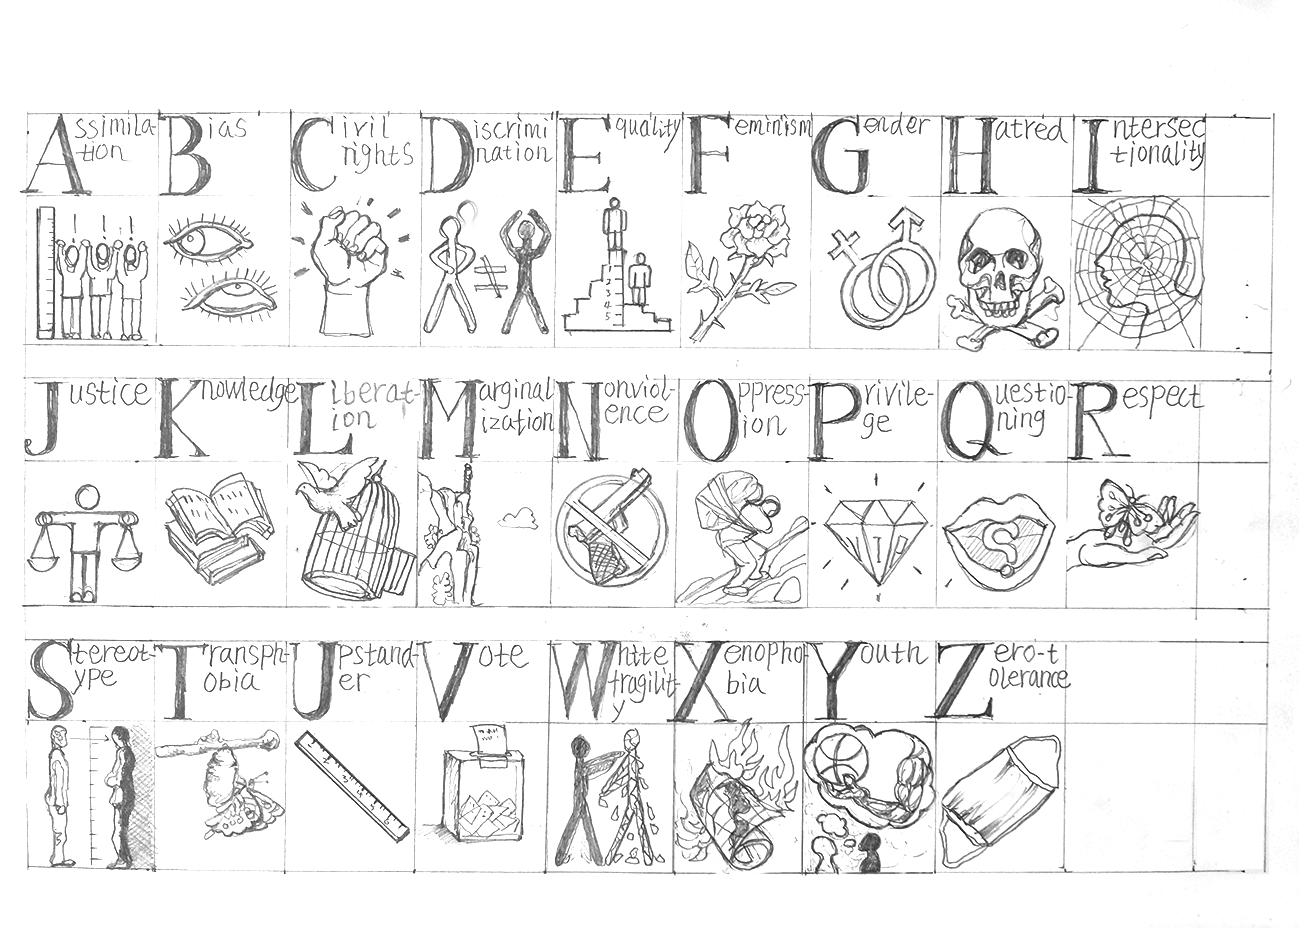 Assimila-
tion
Bias
Civil
rights
Discrimi
nation
Equality
Feminism
Gender
Hatred
Intersec
tionality
! ! !
1
2
3
4
5
Justice
Knowledge
Liberat-
ion
Marginal
ization
Nonviol-
ence
Oppress-
ion
Privile-
ge
Questio-
ning
Respect
VIP
?
Stereot-
ype
Transph-
obia
Upstand-
er
Vote
White
fragilit-
y
Xenopho-
bia
Youth
Zero-t
olerance